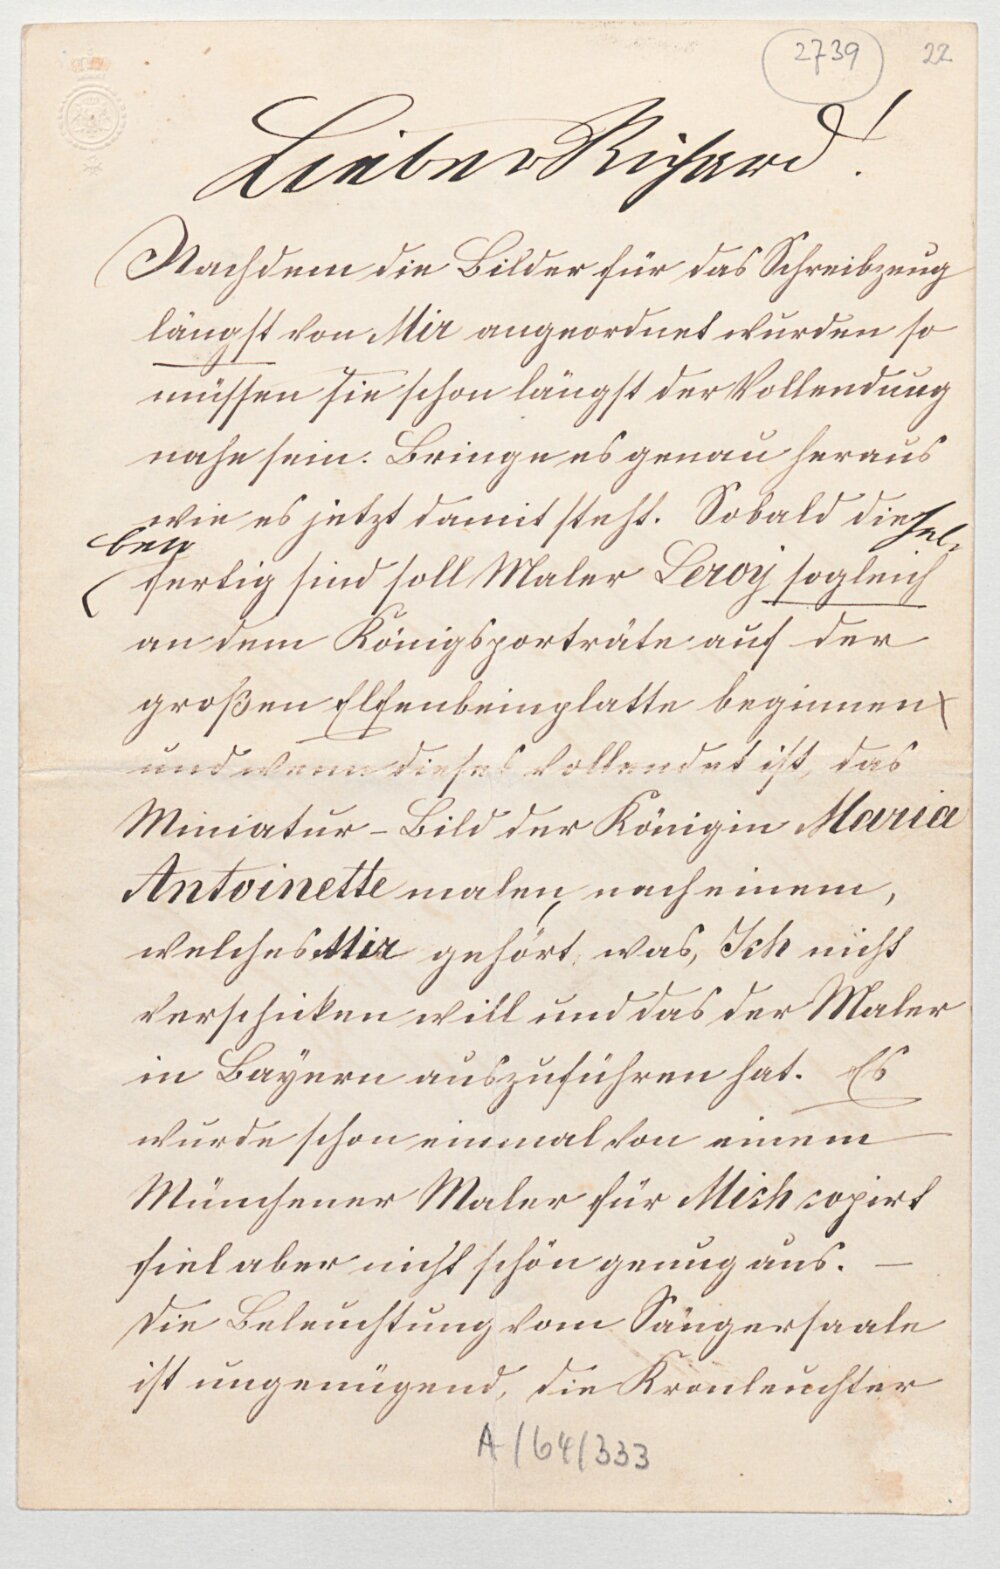 2739 22
Lieber Richard!
Nachdem die Bilder für das Schreibzeug
längst von Mir angeordnet wurden so
müssen sie schon längst der Vollendung
nahe sein. Bringe es genau heraus
wie es jetzt damit steht. Sobald diesel-
ben
fertig sind soll Maler Leroy sogleich
an dem Königsporträte auf der
großen Elfenbeinplatte beginnen
und wenn dieses vollendet ist, das
Miniatur-Bild der Königin Maria
Antoinette malen, nach einem,
welches Mir gehört, was, Ich nicht
verschicken will und das der Maler
in Bayern auszuführen hat. Es
wurde schon einmal von einem
Münchener Maler für Mich copirt
fiel aber nicht schön genug aus. –
Die Beleuchtung vom Sängersaale
ist ungenügend, die Kronleuchter
A/64/333